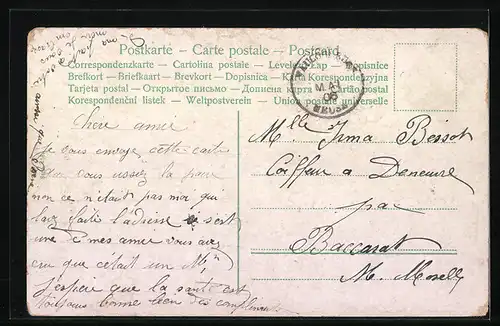 Postkarte – Carte postale – Postcard
Correspondenzkarte – Cartolina postale – Levelező-Lap – Dopisnice
Brefkort – Briefkaart – Brevkort – Dopisnica – Karta Korespondenzyjna
Tarjeta postal – Открытое письмо – Дописна карта – postal
Korespondenční listek – Weltpostverein – Union postale universelle
MAI
05
MEUSE
Chere amie
Je vous envoye cette carte
que vous ussiez la
non ce n'était pas moi qui
faite l'adresse s est
une de mes amie vous avez
cru que c'était un M.
J'espère que la santé est
toujours bonne bien des compliments
Mlle Irma Boissot
Coiffeur a Deneuvre
par
Baccarat
M. Moselle